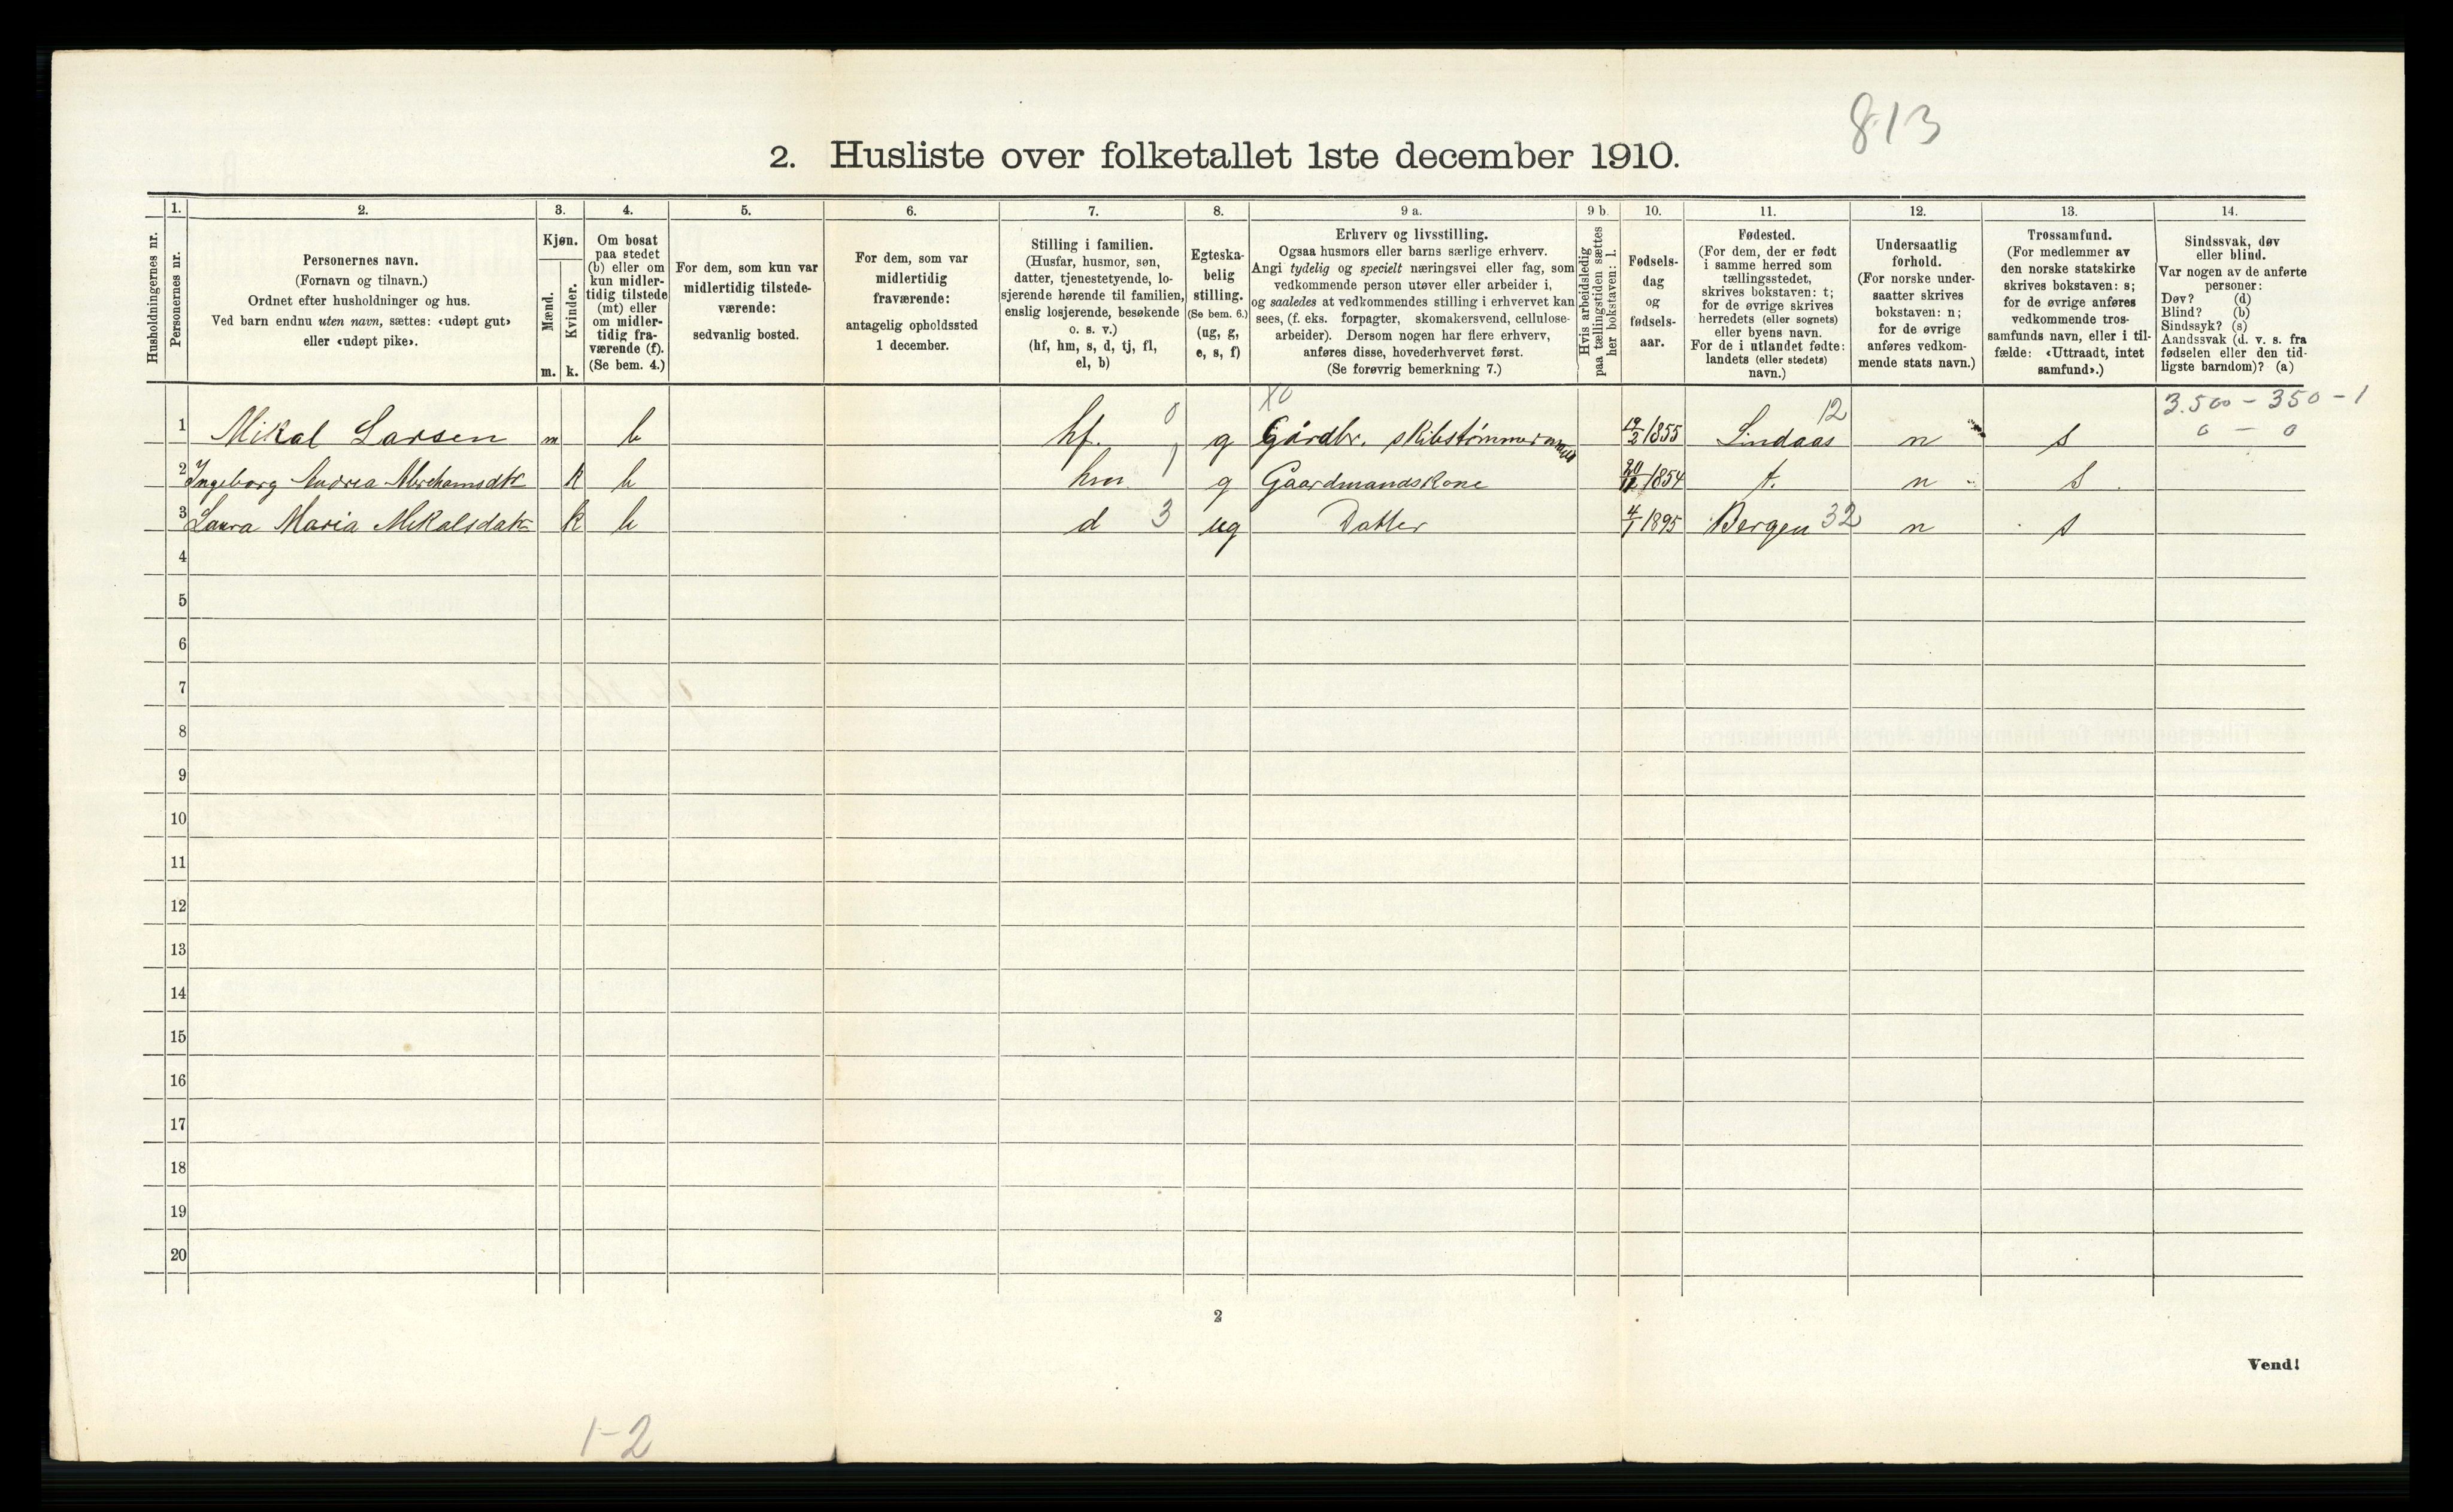 813
2. Husliste over folketallet 1ste december 1910.
Husholdningernes nr.
1.
Personernes nr.
2.
Personernes navn.
(Fornavn og tilnavn.)
Ordnet efter husholdninger og hus.
Ved barn endnu uten navn, sættes: «udøpt gut»
eller «udøpt pike».
3.
Kjøn.
Mænd.
Kvinder.
m. k.
4.
Om bosat
paa stedet
(b) eller om
kun midler-
tidig tilstede
(mt) eller
om midler-
tidig fra-
værende (f).
(Se bem. 4.)
5.
For dem, som kun var
midlertidig tilstede-
værende:
sedvanlig bosted.
6.
For dem, som var
midlertidig
fraværende:
antagelig opholdssted
1 december.
7.
Stilling i familien.
(Husfar, husmor, søn,
datter, tjenestetyende, lo-
sjerende hørende til familien,
enslig losjerende, besøkende
o. s. v.)
(hf, hm, s, d, tj, fl,
el, b)
8.
Egteska-
belig
stilling.
(Se bem. 6.)
(ug, g,
e, s, f)
9 a.
Erhverv og livsstilling.
Ogsaa husmors eller barns særlige erhverv.
Angi tydelig og specielt næringsvei eller fag, som
vedkommende person utøver eller arbeider i,
og saaledes at vedkommendes stilling i erhvervet kan
sees, (f. eks. forpagter, skomakersvend, cellulose-
arbeider). Dersom nogen har flere erhverv,
anføres disse, hovederhvervet først.
(Se forøvrig bemerkning 7.)
9 b.
Hvis arbeidsledig
paa tællingstiden sættes
her bokstaven: l.
10.
Fødsels-
dag
og
fødsels-
aar.
11.
Fødested.
(For dem, der er født
i samme herred som
tællingsstedet,
skrives bokstaven: t;
for de øvrige skrives
herredets (eller sognets)
eller byens navn.
For de i utlandet fødte:
landets (eller stedets)
navn.)
12.
Undersaatlig
forhold.
(For norske under-
saatter skrives
bokstaven: n;
for de øvrige
anføres vedkom-
mende stats navn.)
13.
Trossamfund.
(For medlemmer av
den norske statskirke
skrives bokstaven: s;
for de øvrige anføres
vedkommende tros-
samfunds navn, eller i til-
fælde: «Uttraadt, intet
samfund».)
14.
Sindssvak, døv
eller blind.
Var nogen av de anførte
personer:
Døv? (d)
Blind? (b)
Sindssyk? (s)
Aandssvak (d. v. s. fra
fødselen eller den tid-
ligste barndom)? (a)
X0 3.500 - 350 - 1
1 Mikal Larsen m b hf. 0 g Gårdbr. skibstømmermand 19/2 1855 Lindaas 12 n s 0 - 0
2 Ingeborg Andrea Abrahamsdtr k b hm 1 g Gaardmandskone 1854 t. n s
3 Laura Maria Mikalsdatr k b d 3 ug Datter 4/1 1895 Bergen 32 n s
4
5
6
7
8
9
10
11
12
13
14
15
16
17
18
19
20
2
Vend!
1-2